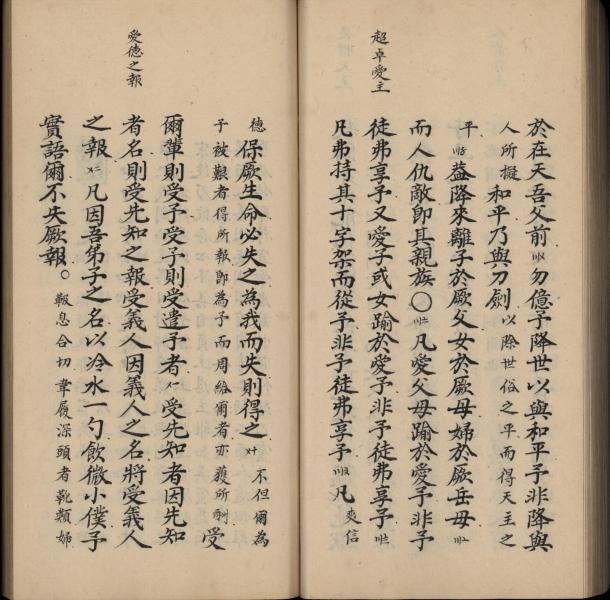 超卓愛主
於在天吾父前勿億予降世以與和平予非降與
人所擬和平乃與刀劍以除世俗之平而得天主之
平益降來離子於厥父女於厥母婦於厥岳母
而人仇敵卽其親族〇凡愛父母踰於愛予非予
徒弗享予又愛子或女踰於愛予非予徒弗享予
凡弗持其十字架而從予非予徒弗享予凡爽信
愛德之報
德保厥生命必失之為我而失則得之不但爾為
子被艱者得所報卽為予而周給爾者亦獲所酬受
爾輩則受予受予則受遣予者受先知者因先知
者名則受先知之報受義人因義人之名將受義人
之報凡因吾弟子之名以冷水一勺飲微小僕予
實語爾不失厥報〇靸息合切韋履深頭者靴纇婦